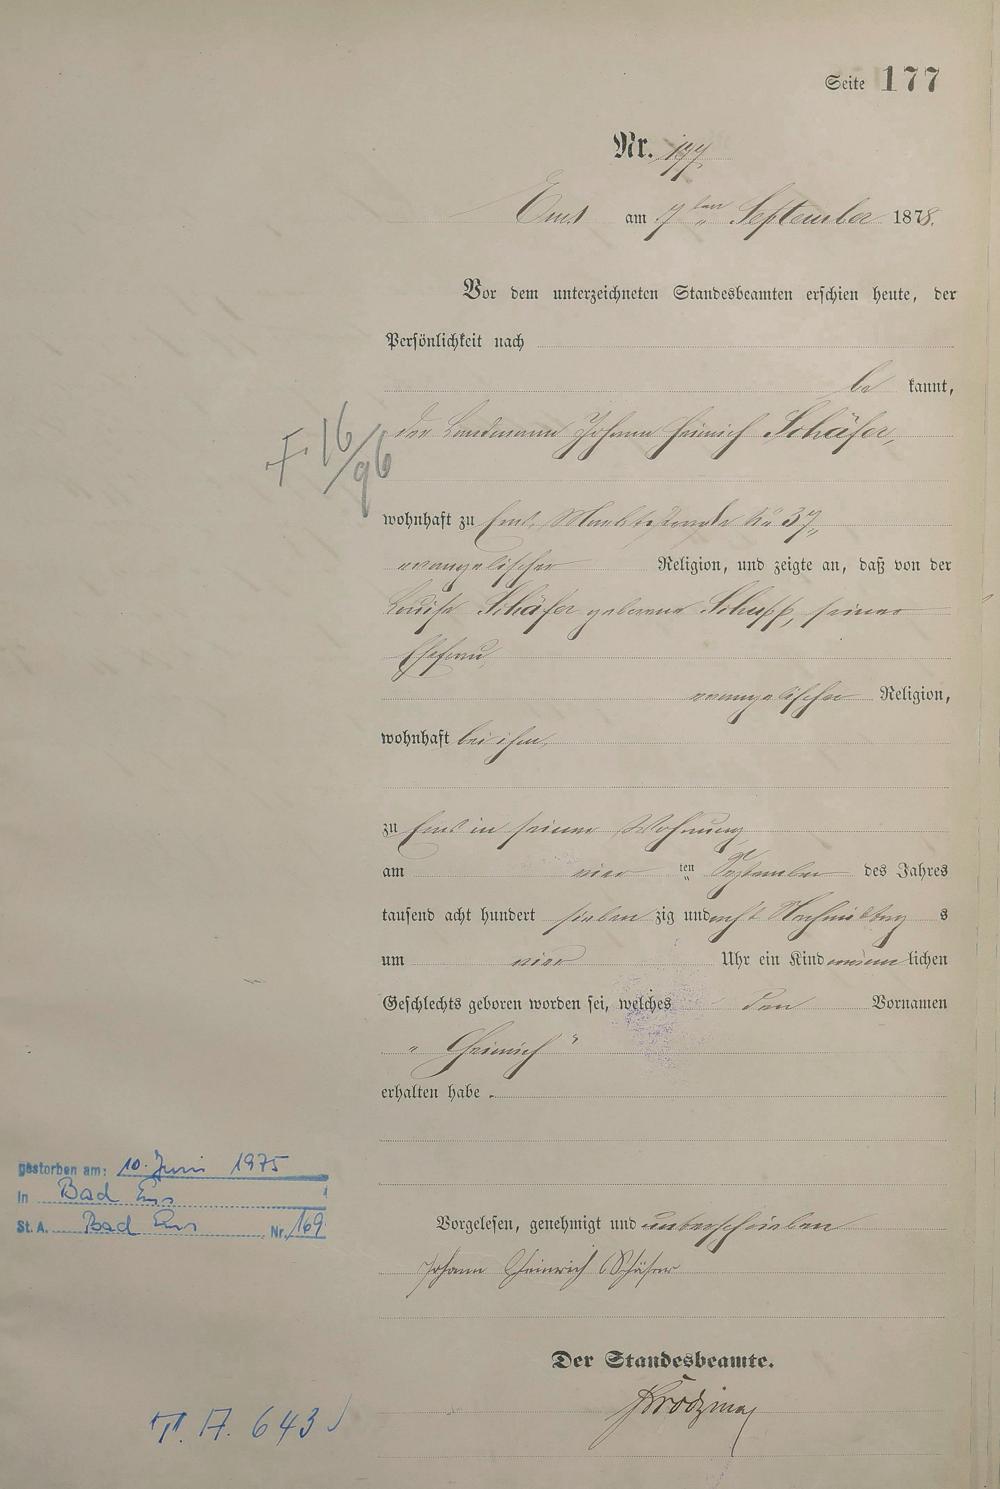 Seite 177
Nr. 177.
Ems am 7ten September 1878.
Vor dem unterzeichneten Standesbeamten erschien heute, der
Persönlichkeit nach
be kannt,
der Landmann Johann Heinrich Schäfer,
F 16/96
wohnhaft zu Ems, Marktstraße No 37,
evangelischer Religion, und zeigte an, daß von der
Louise Schäfer geborene Schupp, seiner
Ehefrau,
evangelischer Religion,
wohnhaft bei ihm,
zu Ems in seiner Wohnung
am vier ten September des Jahres
tausend acht hundert sieben zig und acht Nachmittag s
um vier Uhr ein Kind männ lichen
Geschlechts geboren worden sei, welches den Vornamen
"Heinrich"
erhalten habe.
gestorben am: 10. Juni 1975
in Bad Ems
St. A. Bad Ems Nr. 169
Vorgelesen, genehmigt und unterschrieben
Johann Heinrich Schäfer
Der Standesbeamte.
T. A. 643